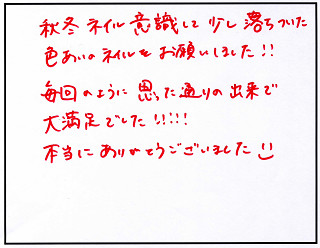 秋冬ネイル意識して少し落ちついた
色あいのネイルをお願いしました!!
毎回のように思った通りの出来で
大満足でした!!!!!
本当にありがとうございました